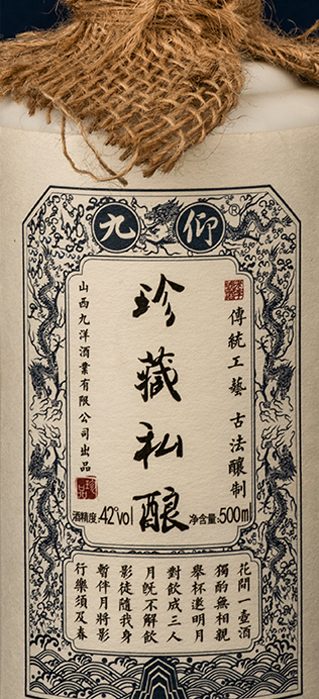 九仰®
傳統工藝 古法釀制
珍藏私酿
山西九洋酒業有限公司出品
酒精度:42%vol
净含量:500ml
花間一壺酒
獨酌無相親
舉杯邀明月
對飲成三人
月既不解飲
影徒隨我身
暫伴月將影
行樂須及春